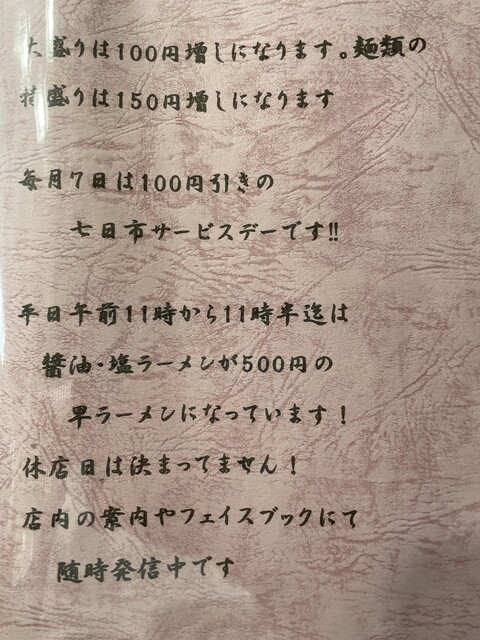 大盛りは100円増しになります。麺類の
特盛りは150円増しになります
毎月7日は100円引きの
七日市サービスデーです!!
平日午前11時から11時半迄は
醬油・塩ラーメンが500円の
早ラーメンになっています!
休店日は決まってません!
店内の案内やフェイスブックにて
随時発信中です